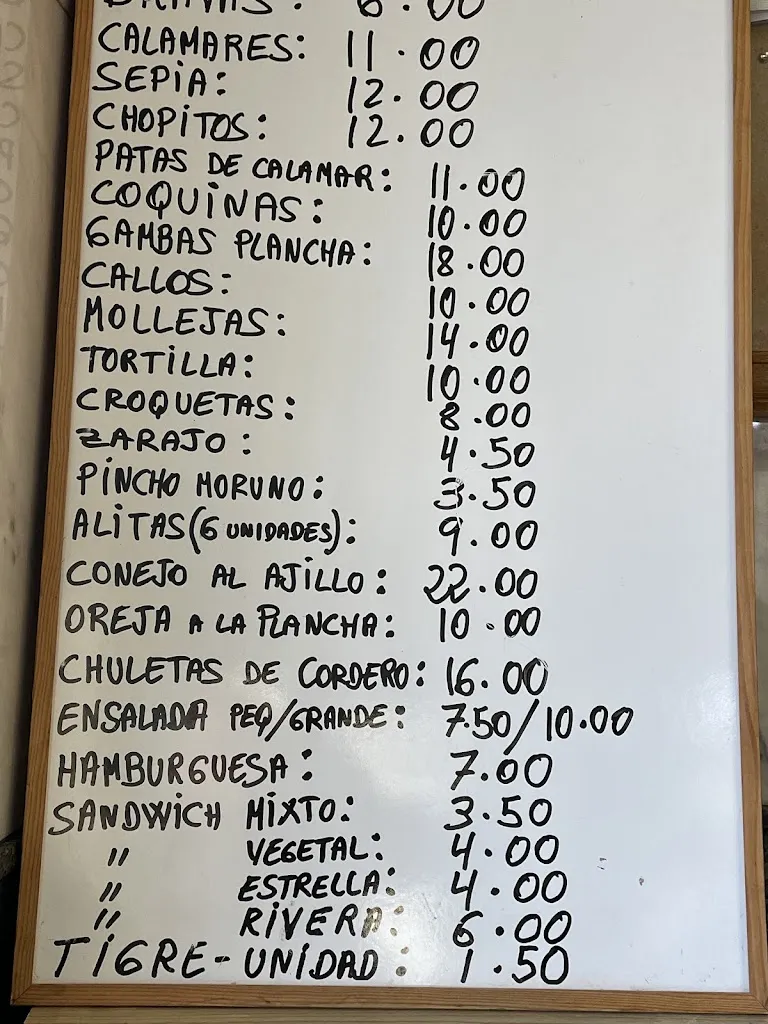 BRAVAS: 6.00
CALAMARES: 11.00
SEPIA: 12.00
CHOPITOS: 12.00
PATAS DE CALAMAR: 11.00
COQUINAS: 10.00
GAMBAS PLANCHA: 18.00
CALLOS: 10.00
MOLLEJAS: 14.00
TORTILLA: 10.00
CROQUETAS: 8.00
ZARAJO: 4.50
PINCHO MORUNO: 3.50
ALITAS (6 UNIDADES): 9.00
CONEJO AL AJILLO: 22.00
OREJA A LA PLANCHA: 10.00
CHULETAS DE CORDERO: 16.00
ENSALADA PEQ/GRANDE: 7.50/10.00
HAMBURGUESA: 7.00
SANDWICH MIXTO: 3.50
" VEGETAL: 4.00
" ESTRELLA: 4.00
" RIVERA: 6.00
TIGRE-UNIDAD: 1.50